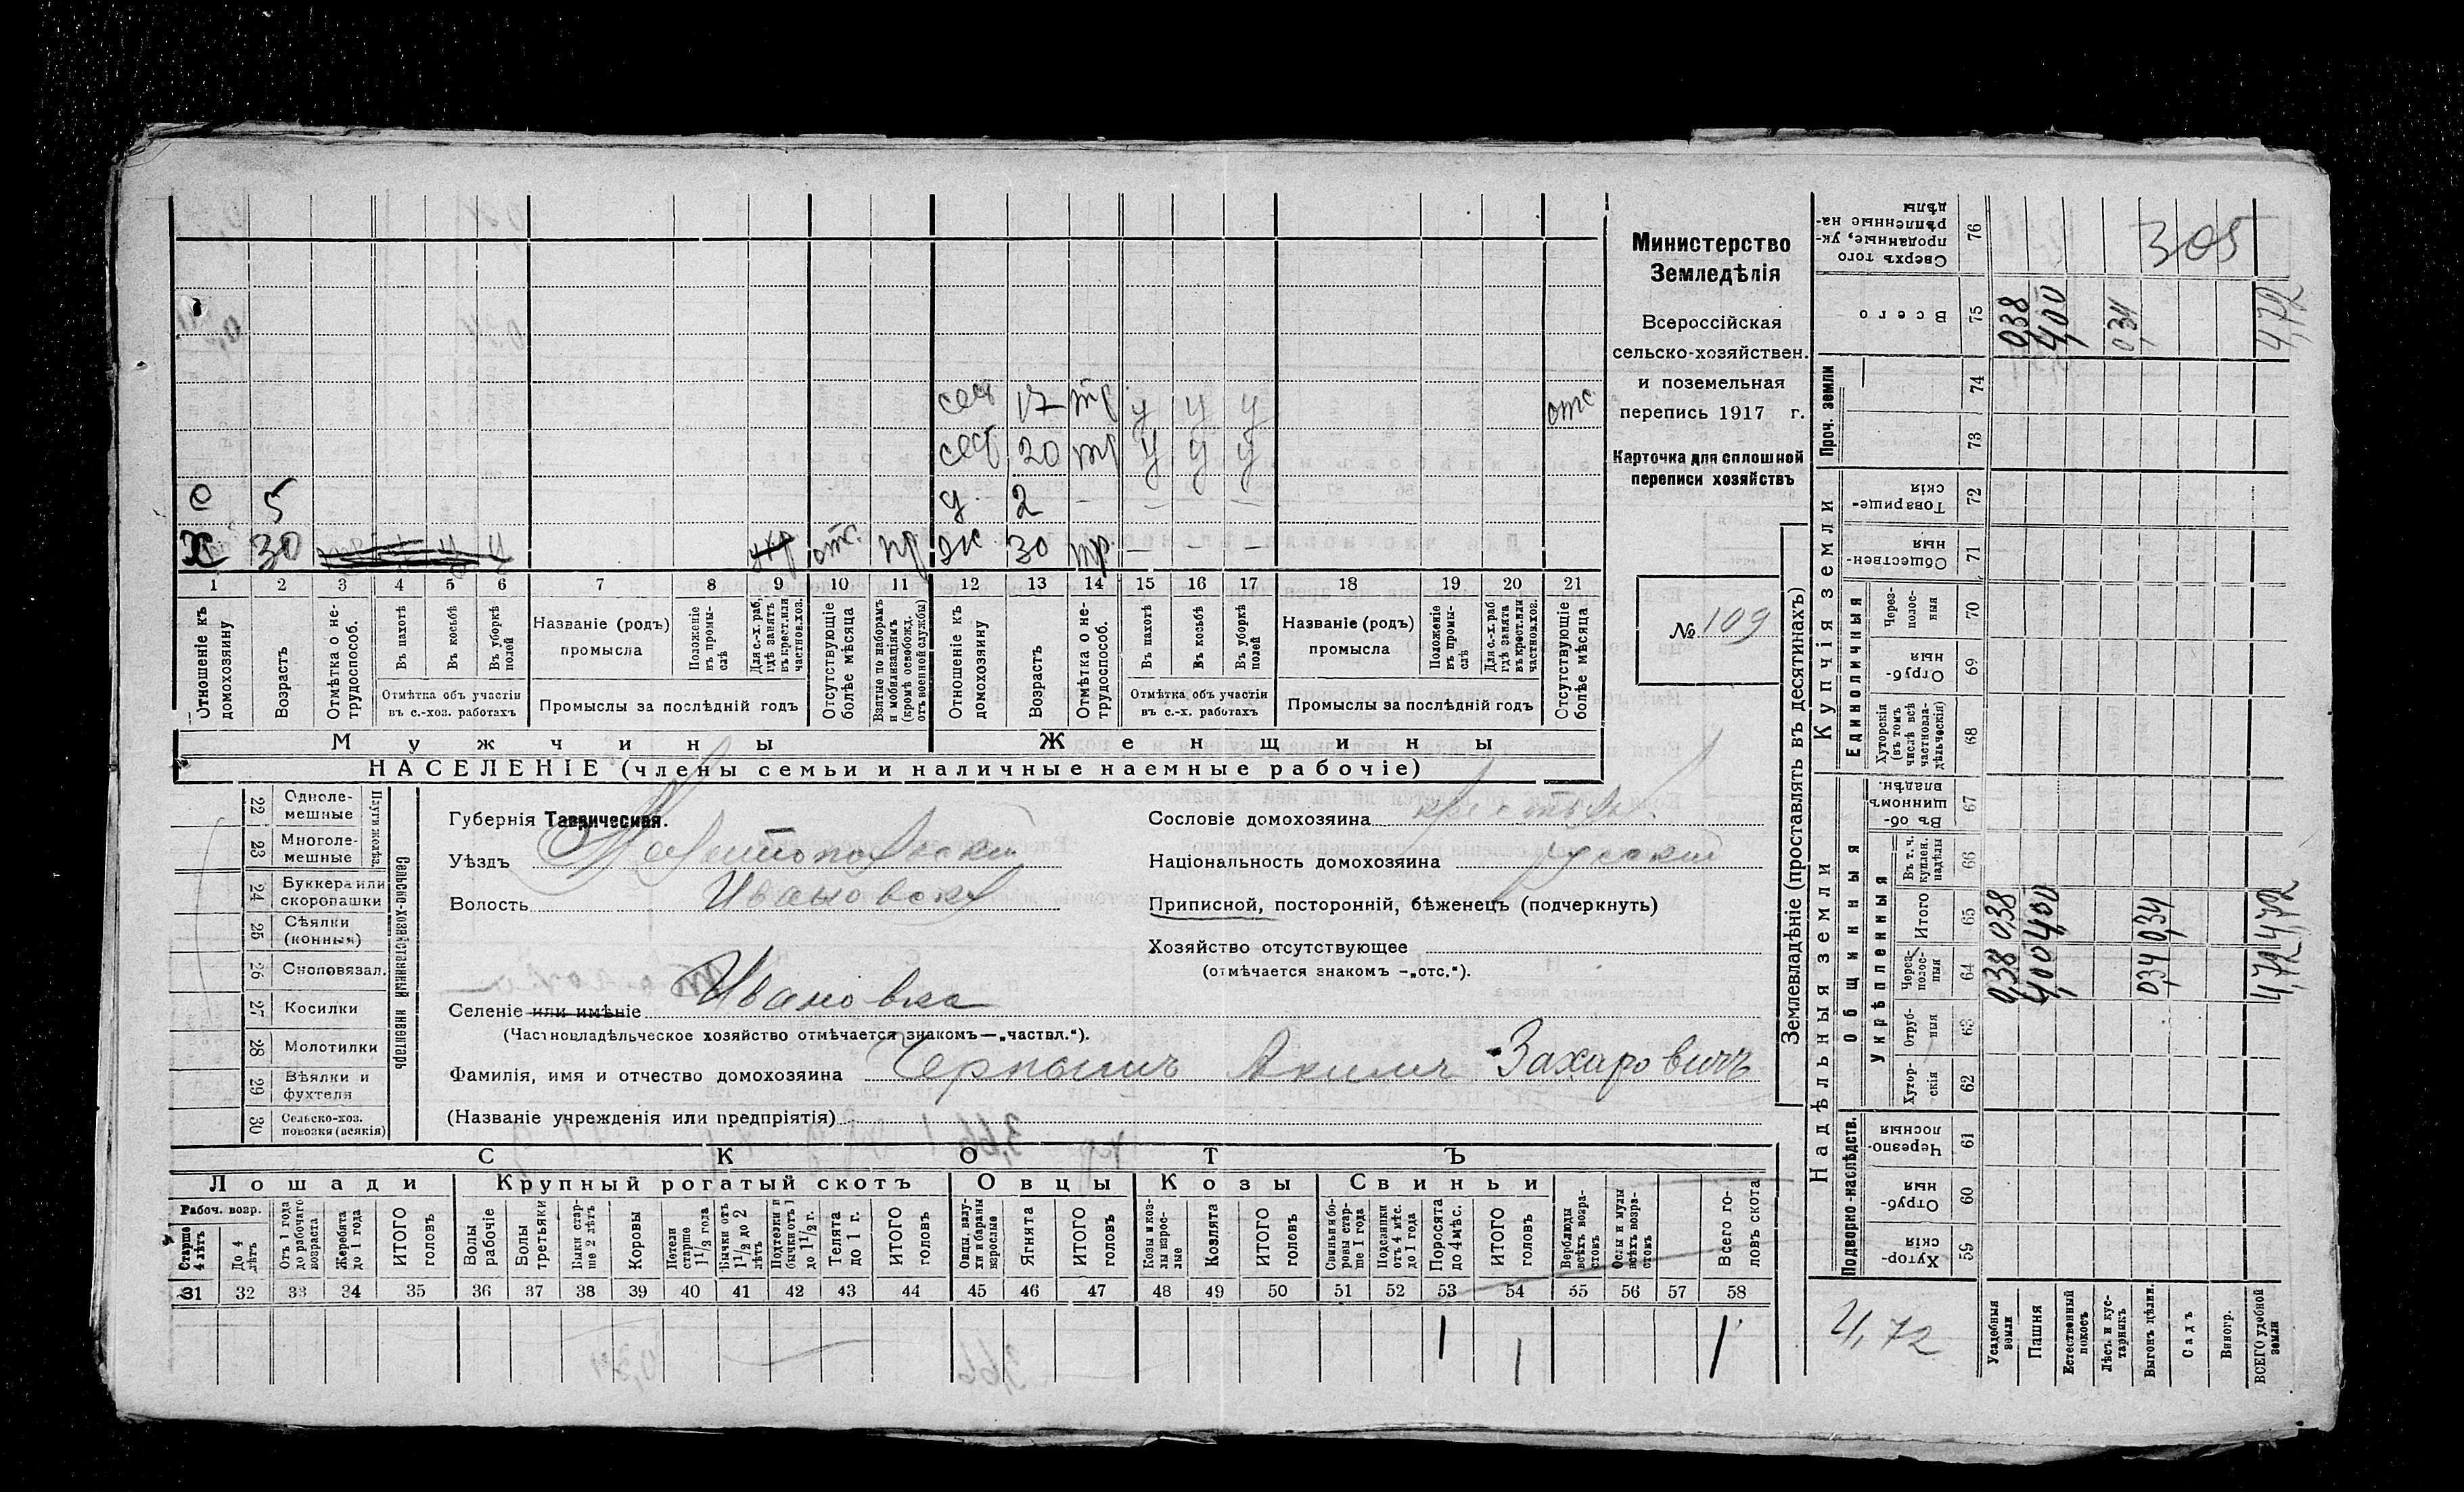 сес 17 тр у у у отс
сес 20 тр у у у
с 5 д 2 – – –
х 30 отс. пр ж 30 тр. – – –
1 2 3 4 5 6 7 8 9 10 11 12 13 14 15 16 17 18 19 20 21
Отношеніе къ домохозяину
Возрастъ
Отмѣтка о не-трудоспособ.
Въ пахотѣ
Въ косьбѣ
Въ уборкѣ полей
Отмѣтка объ участіи въ с.-хоз. работахъ
Названіе (родъ) промысла
Положеніе въ промы-слѣ
Для с.-х. раб. гдѣ занятъ въ крест. или частнов. хоз.
Промыслы за послѣдній годъ
Отсутствующіе болѣе мѣсяца
Взятые по наборамъ и мобилизаціямъ (кромѣ освобожд. отъ военной службы)
Отношеніе къ домохозяину
Возрастъ
Отмѣтка о не-трудоспособ.
Въ пахотѣ
Въ косьбѣ
Въ уборкѣ полей
Отмѣтка объ участіи въ с.-х. работахъ
Названіе (родъ) промысла
Положеніе въ промы-слѣ
Для с.-х. раб гдѣ занята въ крест. или частнов. хоз.
Промыслы за послѣдній годъ
Отсутствующіе болѣе мѣсяца
Мужчины Женщины
НАСЕЛЕНІЕ (члены семьи и наличные наемные рабочіе)
Министерство
Земледѣлія
Всероссійская
сельско-хозяйствен.
и поземельная
перепись 1917 г.
Карточка для сплошной
переписи хозяйствъ
№ 109
22 Одноле-мешные
23 Многоле-мешные
Плуги желѣз.
24 Буккера или скоропашки
25 Сѣялки (конныя)
26 Сноповязал.
27 Косилки
28 Молотилки
29 Вѣялки и фухтеля
30 Сельско-хоз. повозки (всякія)
Сельско-хозяйственный инвентарь
Губернія Таврическая.
Уѣздъ Мелитопольскій
Волость Ивановск
Селеніе или имѣніе Ивановка
(Частновладѣльческое хозяйство отмѣчается знакомъ—„частвл.“).
Фамилія, имя и отчество домохозяина Захаровичъ
(Названіе учрежденія или предпріятія)
Сословіе домохозяина крестьян.
Національность домохозяина русскій
Приписной, посторонній, бѣженецъ (подчеркнуть)
Хозяйство отсутствующее
(отмѣчается знакомъ -„отс.“).
СКОТЪ
Лошади Крупный рогатый скотъ Овцы Козы Свиньи
Рабоч. возр.
Старше 4 лѣтъ
До 4 лѣтъ
Отъ 1 года до рабочаго возраста
Жеребята до 1 года
ИТОГО головъ
Волы рабочіе
Волы третьяки
Быки стар-ше 2 лѣтъ
Коровы
Нетели старше 1 1/2 года
Бычки отъ 1 1/2 до 2 лѣтъ
Подтелки и бычки отъ 1 до 1 1/2 г.
Телята до 1 г.
ИТОГО головъ
Овцы, валу-хи и бараны взрослые
Ягнята
ИТОГО головъ
Козы и коз-лы взрос-лые
Козлята
ИТОГО головъ
Свиньи и бо-ровы стар-ше 1 года
Подсвинки отъ 4 мѣс. до 1 года
Поросята до 4 мѣс.
ИТОГО головъ
Верблюды всѣхъ возра-стовъ
Ослы и мулы всѣхъ возра-стовъ
Всего го-ловъ скота
31 32 33 34 35 36 37 38 39 40 41 42 43 44 45 46 47 48 49 50 51 52 53 54 55 56 57 58
1 1 1
Землевладѣніе (проставлять въ десятинахъ)
Надѣльныя земли Купчія земли Проч. земли
Подворно-наслѣдств. Общинныя Единоличныя
Укрѣпленныя
Сверхъ того проданные, ук-рѣпленные на-дѣлы 76 305
Всего 75 0,38 4,00 0,34 4,72
74
73
Товарище-скія 72
Обществен-ныя 71
Через-полос-ныя 70
Отруб-ныя 69
Хуторскія (въ томъ числѣ всѣ частновла-дѣльческія) 68
Въ об-щинномъ владѣн. 67
Въ т. ч. куплен. надѣлы 66
Итого 65 0,38 4,00 0,34 4,72
Через-полос-ныя 64 0,38 4,00 0,34 4,72
Отруб-ныя 63
Хутор-скія 62
Черезпо-лосныя 61
Отруб-ныя 60
Хутор-скія 59
4,72
Усадебныя земли
Пашня
Естественный покосъ
Лѣсъ и кус-тарникъ
Выгонъ цѣлин.
Садъ
Виногр.
ВСЕГО удобной земли